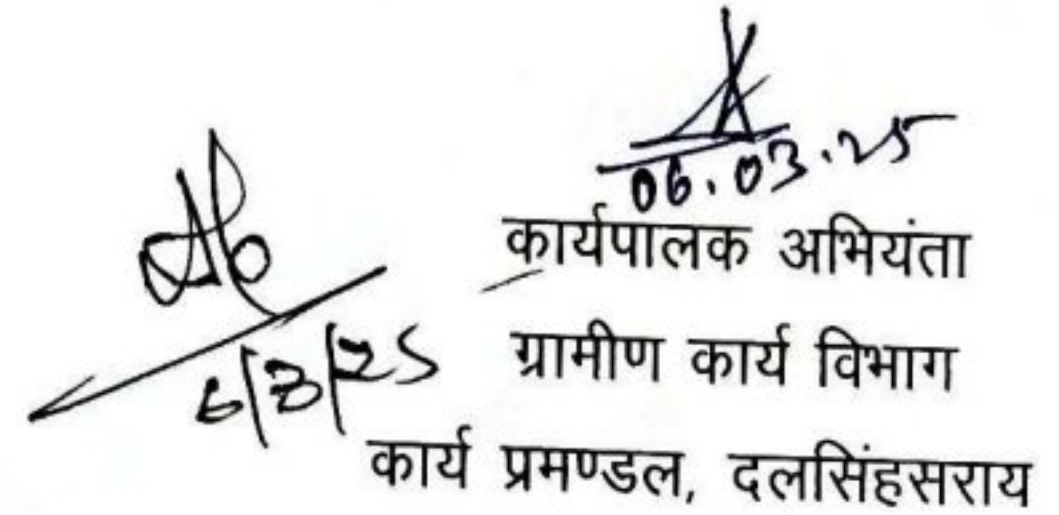 06.03.25
कार्यपालक अभियंता
6/3/25
ग्रामीण कार्य विभाग
कार्य प्रमण्डल, दलसिंहसराय